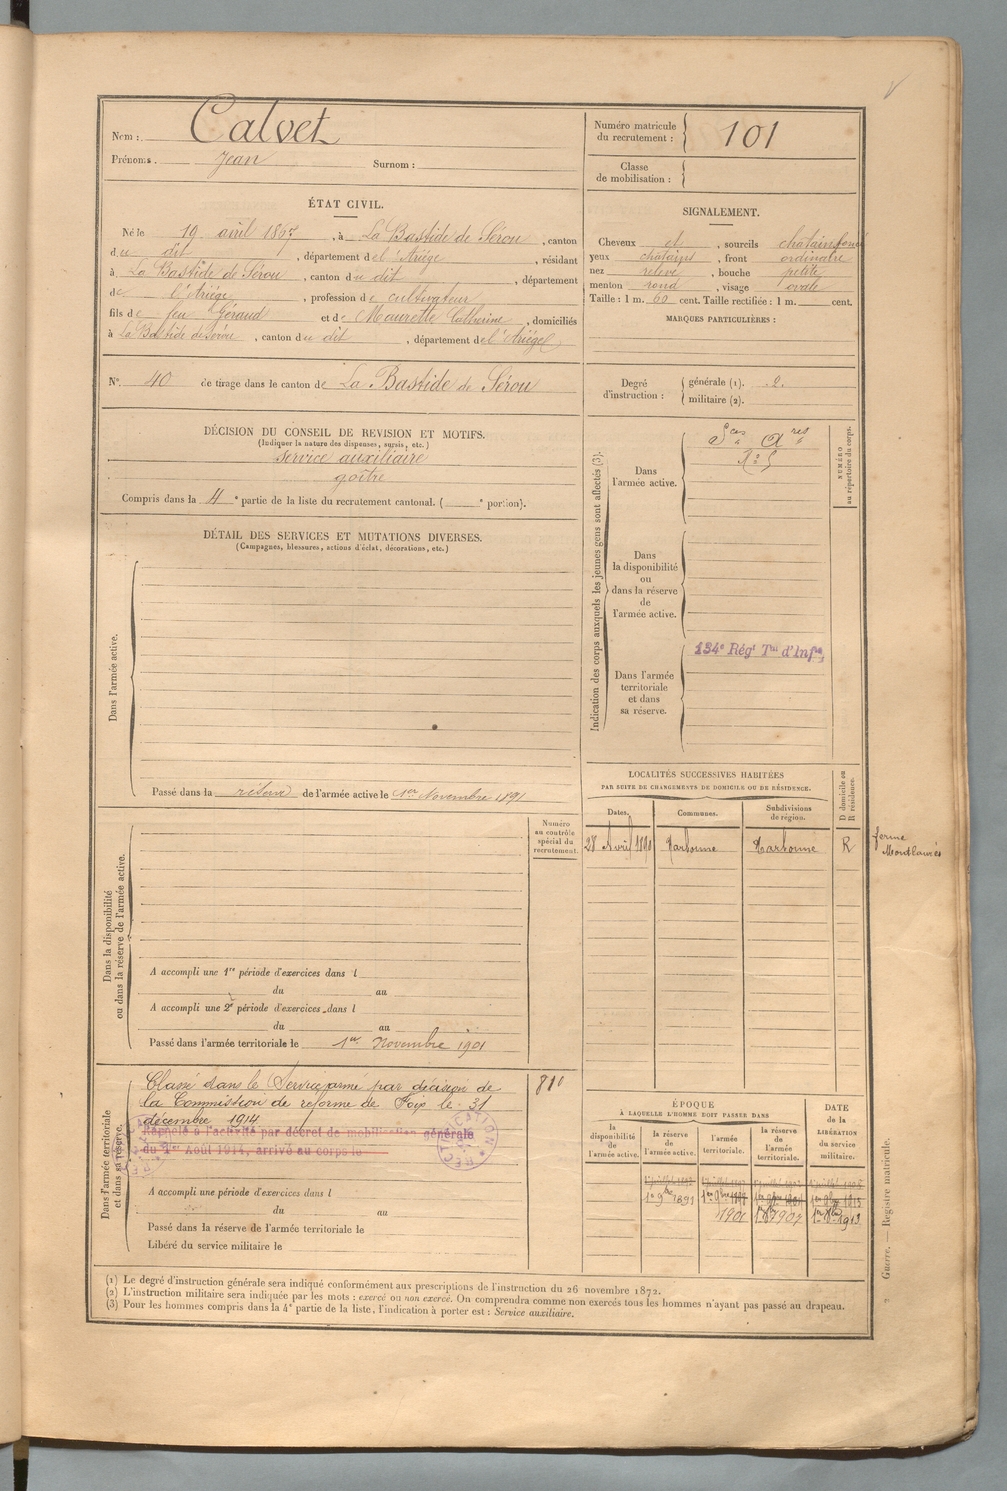 Nom : Calvet
Prénoms . Jean Surnom :
Numéro matricule du recrutement : 101
Classe de mobilisation :
ÉTAT CIVIL.
Né le 19 avril 1867, à La Bastide de Sérou, canton
du dit, département de l'Ariége, résidant
à La Bastide de Sérou, canton du dit, département
de l'Ariége, profession de cultivateur
fils de feu Géraud et de Maurette Catherine, domiciliés
à La Bastide de Sérou, canton du dit, département de l'Ariége
SIGNALEMENT.
Cheveux et , sourcils châtain foncé
yeux châtains , front ordinaire
nez relevé , bouche petite
menton rond , visage ovale
Taille : 1 m. 60 cent. Taille rectifiée : 1 m. cent.
MARQUES PARTICULIÈRES :
No. 40 de tirage dans le canton de La Bastide de Sérou
Degré d'instruction : générale (1). 2.
militaire (2).
DÉCISION DU CONSEIL DE REVISION ET MOTIFS.
(Indiquer la nature des dispenses, sursis, etc.)
Service auxiliaire
goître
Compris dans la 4e partie de la liste du recrutement cantonal. ( e portion).
DÉTAIL DES SERVICES ET MUTATIONS DIVERSES.
(Campagnes, blessures, actions d'éclat, décorations, etc.)
Dans l'armée active.
Passé dans la réserve de l'armée active le 1er Novembre 1891
Indication des corps auxquels les jeunes gens sont affectés (3).
NUMÉRO au répertoire du corps.
Dans l'armée active.
Sces Ares
Dans la disponibilité ou dans la réserve de l'armée active.
Dans l'armée territoriale et dans sa réserve.
134e Régt Tal d'Infie
LOCALITÉS SUCCESSIVES HABITÉES
PAR SUITE DE CHANGEMENTS DE DOMICILE OU DE RÉSIDENCE.
Dates. Communes. Subdivisions de région. D domicile ou R résidence.
28 Avril Narbonne Narbonne R ferme Montlaurès
Dans la disponibilité ou dans la réserve de l'armée active.
Numéro au contrôle spécial du recrutement.
A accompli une 1re période d'exercices dans l
du au
A accompli une 2e période d'exercices dans l
du au
Passé dans l'armée territoriale le 1er Novembre 1901
Dans l'armée territoriale et dans sa réserve.
Classé dans le Service armé par décision de
la Commission de réforme de Foix le 31
décembre 1914
810
Rappelé à l'activité par décret de mobilisation générale
du 1er Août 1914, arrivé au corps le
RECTIFICATION
A accompli une période d'exercices dans l
du au
Passé dans la réserve de l'armée territoriale le
Libéré du service militaire le
ÉPOQUE
À LAQUELLE L'HOMME DOIT PASSER DANS
la disponibilité de l'armée active. la réserve de l'armée active. l'armée territoriale. la réserve de l'armée territoriale. DATE de la LIBÉRATION du service militaire.
1er 9bre 1891
1901 1907 1913
(1) Le degré d'instruction générale sera indiqué conformément aux prescriptions de l'instruction du 26 novembre 1872.
(2) L'instruction militaire sera indiquée par les mots : exercé ou non exercé. On comprendra comme non exercés tous les hommes n'ayant pas passé au drapeau.
(3) Pour les hommes compris dans la 4e partie de la liste, l'indication à porter est : Service auxiliaire.
Guerre. — Registre matricule.